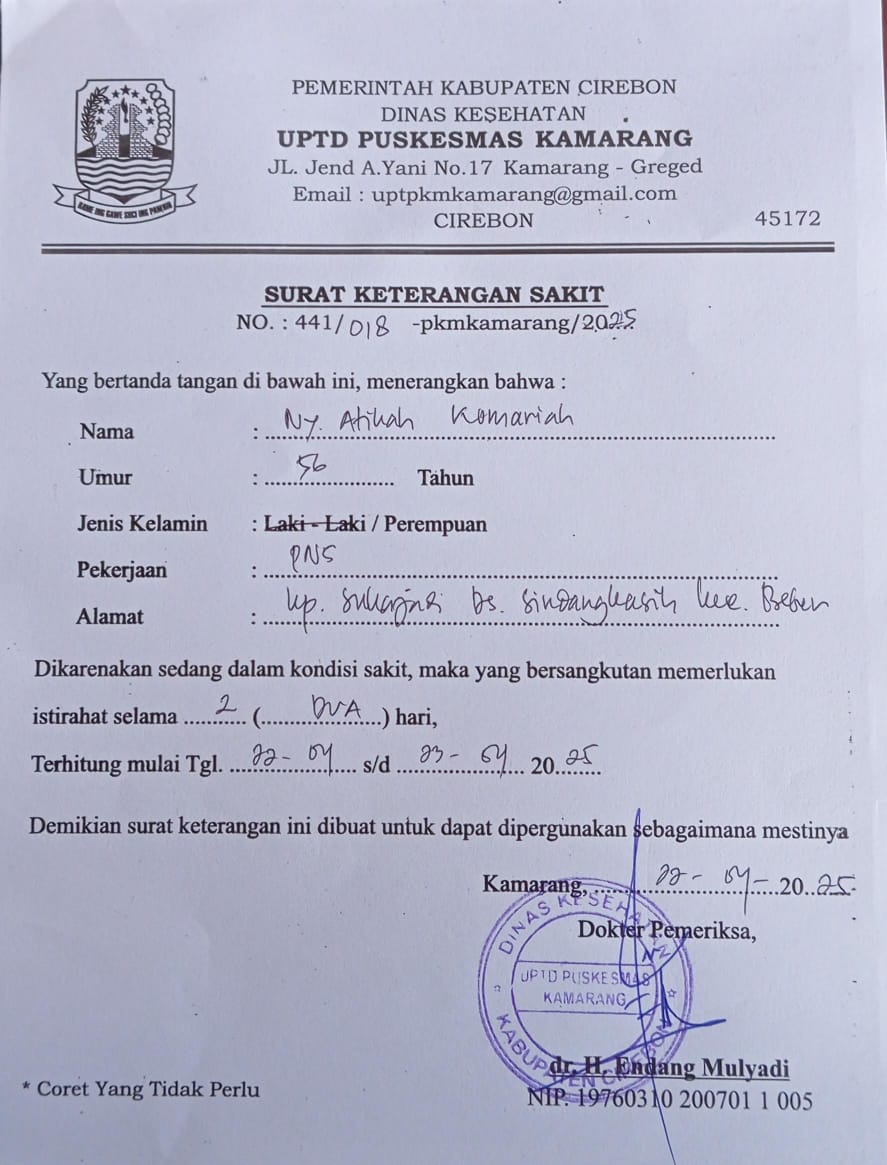 PEMERINTAH KABUPATEN CIREBON
DINAS KESEHATAN
UPTD PUSKESMAS KAMARANG
JL. Jend A.Yani No.17 Kamarang - Greged
Email : uptpkmkamarang@gmail.com
CIREBON 45172
SURAT KETERANGAN SAKIT
NO. : 441/018 -pkmkamarang/2025
Yang bertanda tangan di bawah ini, menerangkan bahwa :
Nama : Ny. Atikah Komariah
Umur : 56 Tahun
Jenis Kelamin : Laki - Laki / Perempuan
Pekerjaan : PNS
Alamat : kp. Ds. Sindangkasih kec. Beber
Dikarenakan sedang dalam kondisi sakit, maka yang bersangkutan memerlukan
istirahat selama 2 (DUA) hari,
Terhitung mulai Tgl. 22-04 s/d 23-04 2025
Demikian surat keterangan ini dibuat untuk dapat dipergunakan sebagaimana mestinya
Kamarang, 22-04-2025
Dokter Pemeriksa,
DINAS KESEHATAN
UPTD PUSKESMAS
KAMARANG
KABUPATEN CIREBON
dr. H. Endang Mulyadi
NIP. 19760310 200701 1 005
* Coret Yang Tidak Perlu